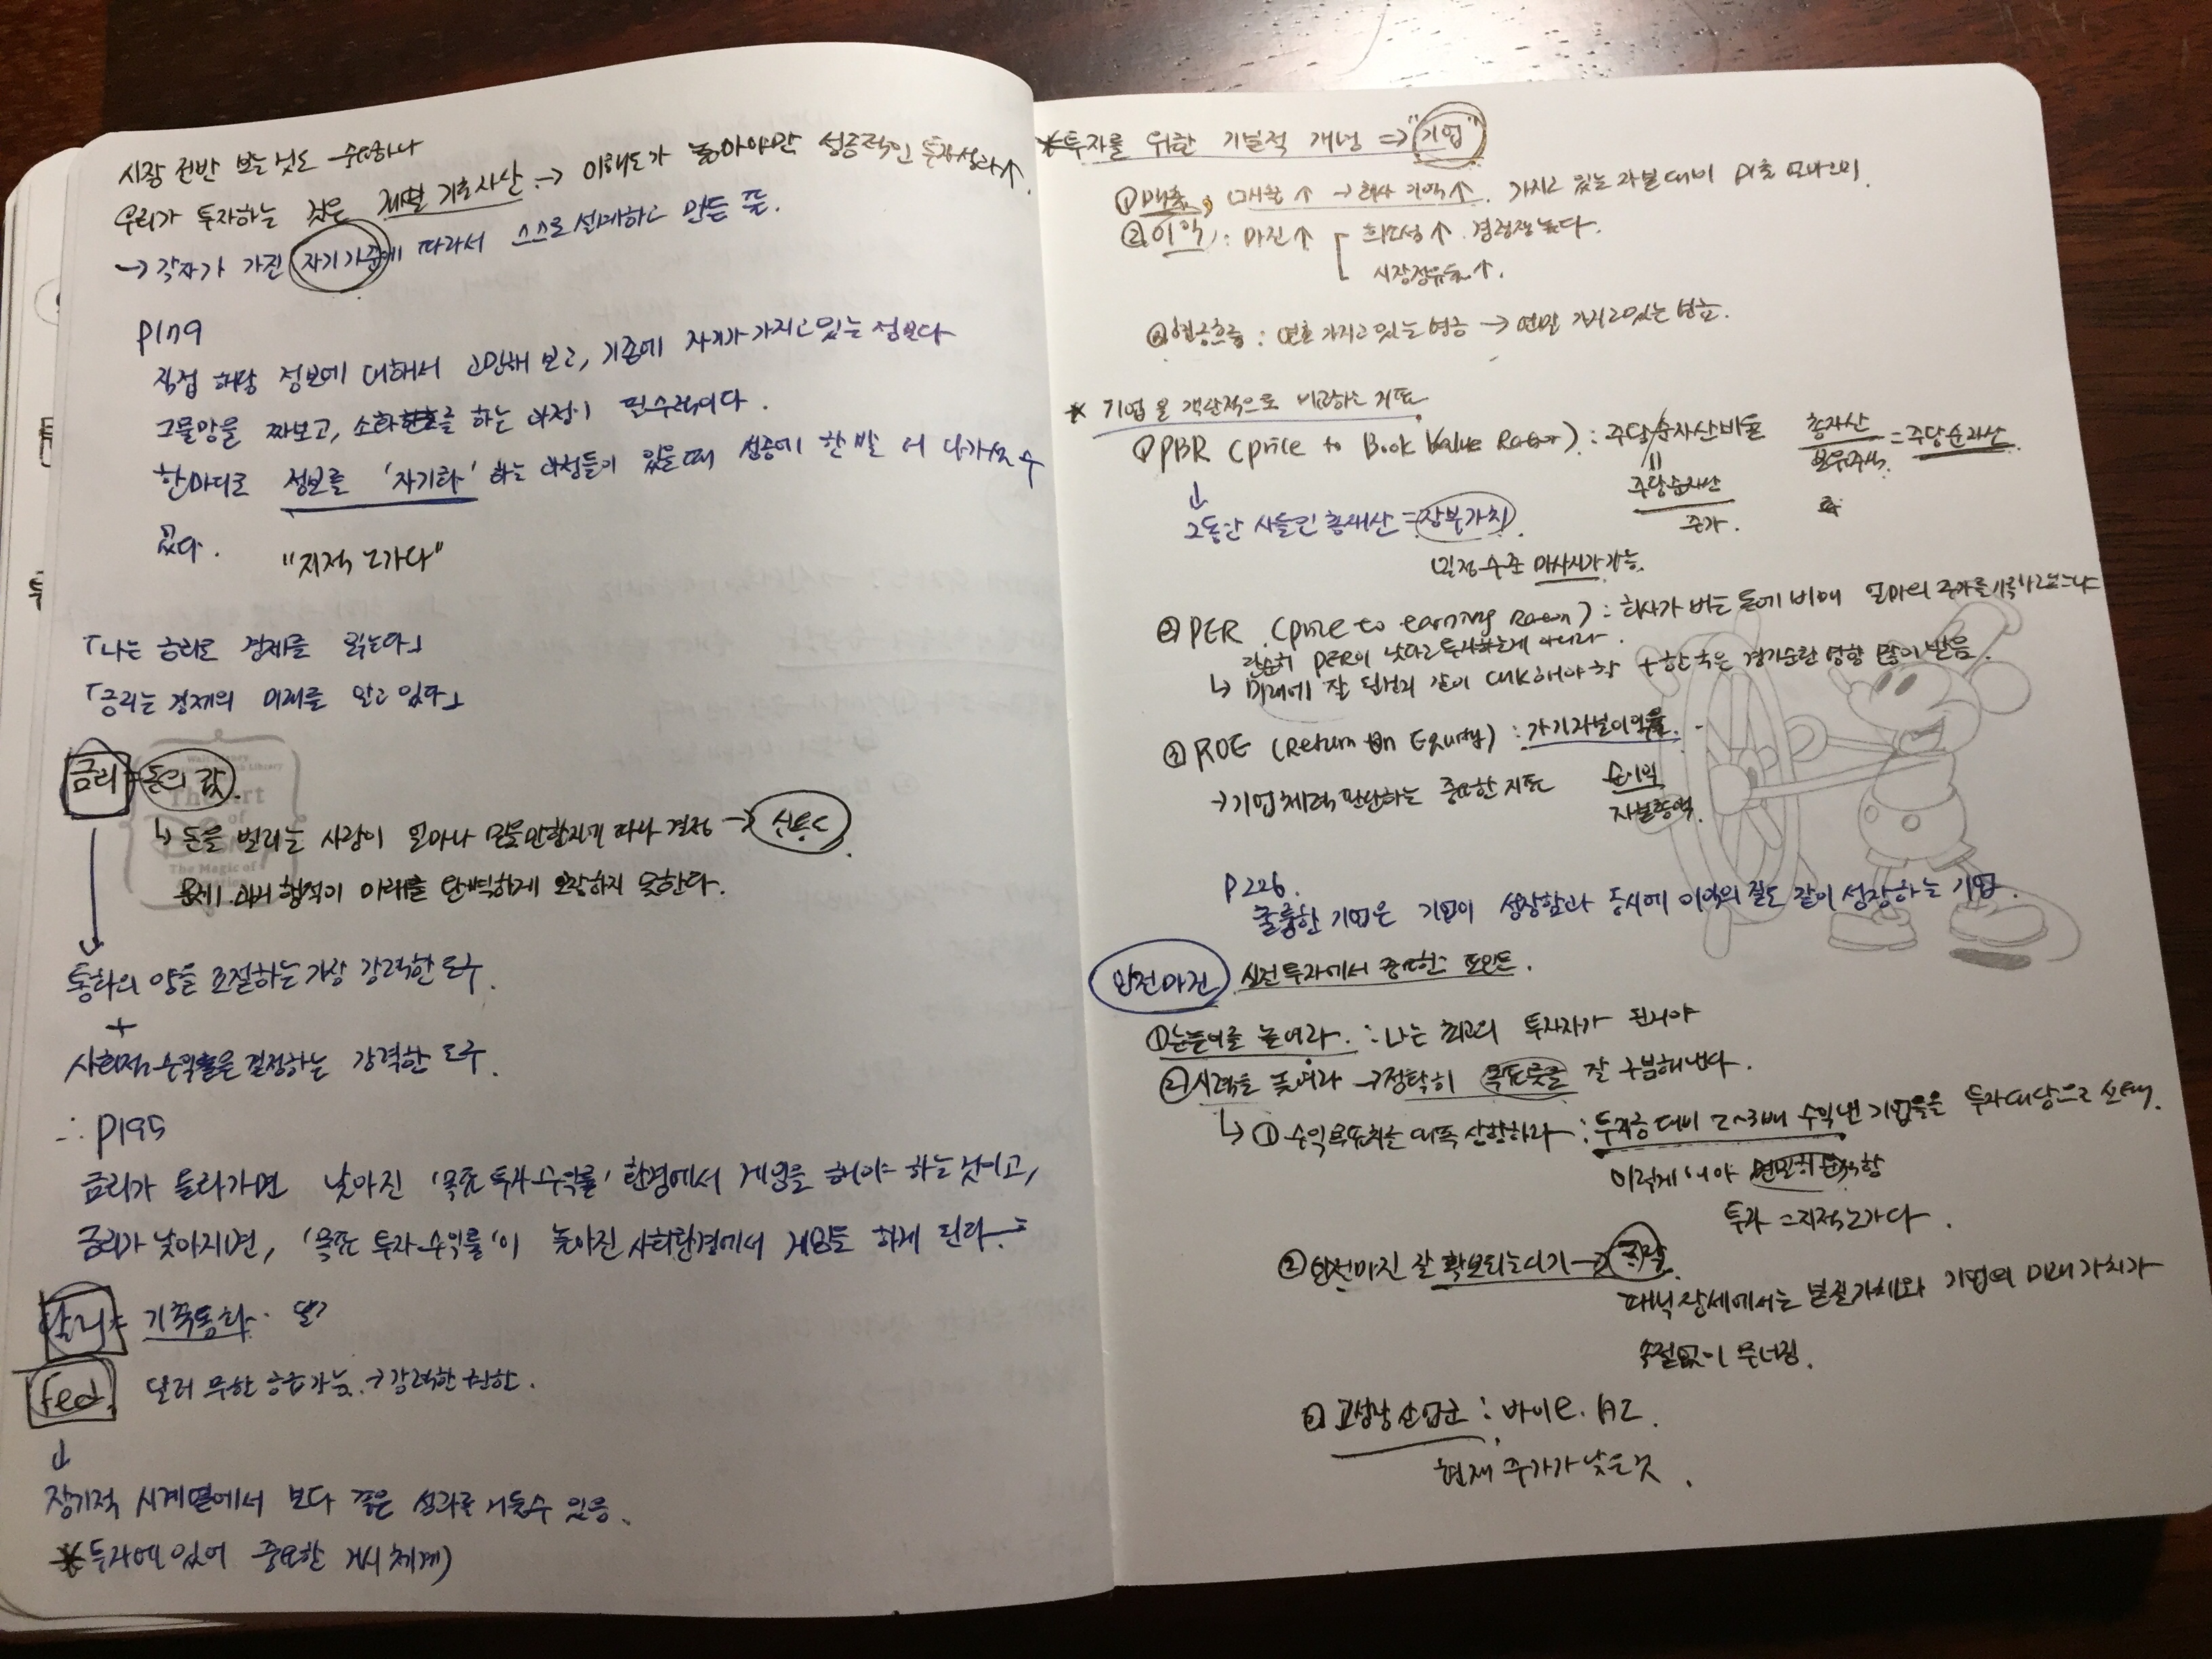 시장 전반 보는 것도 중요하나
우리가 투자하는 것은 개별 기초자산 → 이해도가 높아야만 성공적인 투자성과↑.
→ 각자가 가진 자기기준에 따라서 스스로 설계하고 만든 뜻.
P179
직접 해당 정보에 대해서 고민해 보고, 기존에 자기가 가지고 있는 정보다
그물망을 짜보고, 소화 를 하는 과정이 필수적이다.
한마디로 정보를 '자기화' 하는 과정들이 있을 때 성공에 한 발 더 나가설 수
있다. "지적 노가다"
「나는 금리로 경제를 읽는다」
「금리는 경제의 미래를 알고 있다」
금리 = 돈의 값.
Walt Disney
The Art
of
Disney
The Magic of
↳ 돈을 빌리는 사람이 얼마나 믿을만한지에 따라 결정 → 신용
문제: 과거 행적이 미래를 완벽하게 보장하지 못한다.
↓
통화의 양을 조절하는 가장 강력한 도구.
+
사회적 수익률을 결정하는 강력한 도구.
∴ P195
금리가 올라가면 낮아진 '목표 투자수익률' 환경에서 게임을 해야 하는 것이고,
금리가 낮아지면, '목표 투자수익률'이 높아진 사회환경에서 게임을 하게 된다.
달러 = 기축통화.
Fed. 달러 무한 공급가능. → 강력한 권한.
↓
장기적 시계열에서 보다 좋은 성과를 거둘수 있음.
* 투자에 있어 중요한
* 투자를 위한 기본적 개념 ⇒ "기업"
① 매출, 매출↑ → 회사 기억↑. 가지고 있는 자본대비
② 이익: 마진↑ [ 희소성↑. 경쟁력높다.
시장점유율↑.
③ 현금흐름: 연초 가지고 있는 현금 → 연말 가지고있는 현금.
* 기업을 객관적으로 비교하는 지표
① PBR (price to Book Value Ratio): 주당순자산비율 총자산/보유주식 = 주당순자산
=
주당순자산
주가.
↓
그동안 사들인 총재산 = 장부가치.
일정수준 가능.
② PER (price to earning Ratio): 회사가 버는 돈에 비해 얼마의 주가를 기록하고있느냐
단순히 PER이 낮다고 투자하는게 아니라.
↳ 미래에 잘 될건지 같이 check해야 함 + 한국은 경기순환 영향 많이 받음.
③ ROE (Return on Equity): 자기자본이익률.
→ 기업체력 판단하는 중요한 지표 순이익
자본총액.
P226.
훌륭한 기업은 기업이 성장함과 동시에 이익의 질도 같이 성장하는 기업.
안전마진 실전투자에서 중요한 포인트.
① 눈높이를 높여라.: 나는 최고의 투자자가 될거야
② 시력을 높여라 → 정확히 잘 구분해낸다.
↳ ① 수익목표치를 대폭 상향하라: 투자금 대비 2~3배 수익낼 기업들을 투자대상으로 선택.
이렇게 해야 면밀히
투자 = 지적노가다.
② 안전마진 잘 확보되는시기 → 폭락
패닉장세에서는 본질가치와 기업의 미래가치가
속절없이 무너짐.
③ 고성장산업군: 바이오. AI.
현재 주가가 낮은것.